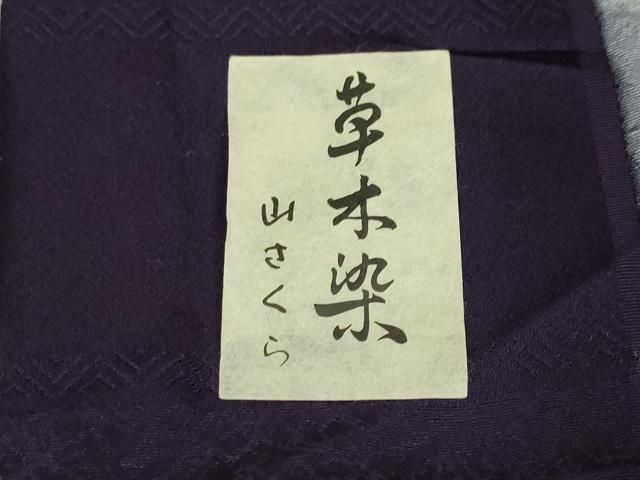 草木染
山さくら